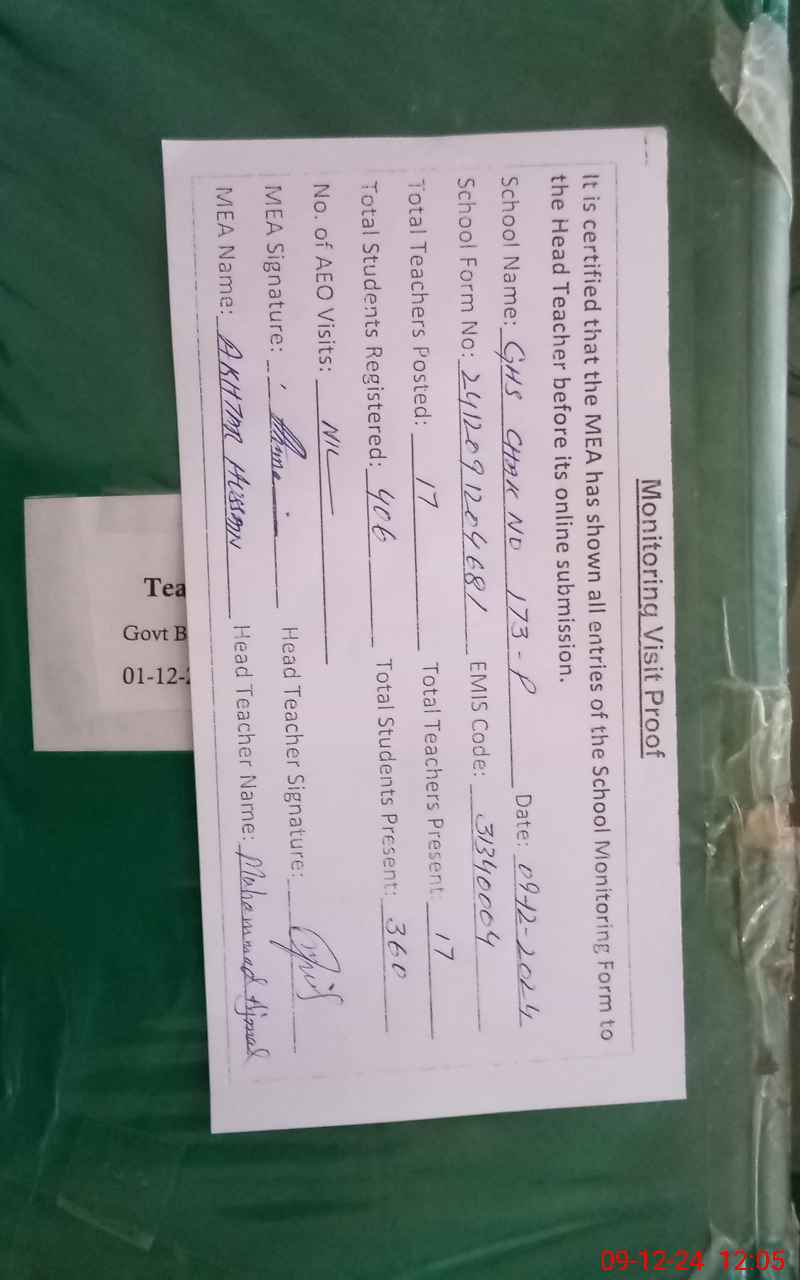 Monitoring Visit Proof
It is certified that the MEA has shown all entries of the School Monitoring Form to
the Head Teacher before its online submission.
School Name: GHS CHAK NO 173-P Date: 09-12-2024
School Form No: 2412091204681 EMIS Code: 31340004
Total Teachers Posted: 17 Total Teachers Present: 17
Total Students Registered: 406 Total Students Present: 360
No. of AEO Visits: NIL
MEA Signature: Head Teacher Signature:
MEA Name: AKHTAR HUSSAIN Head Teacher Name: Muhammad Ajmal
Tea
Govt B
01-12-
09-12-24 12:05